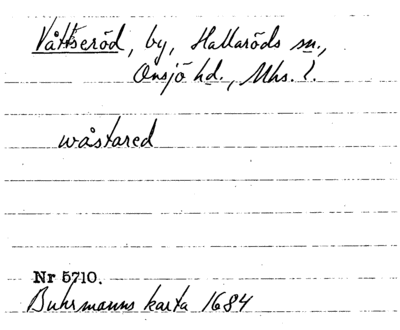 Våttseröd, by, Hallaröds sn.,
Onsjö hd., Mhs. l.
wåstared
Nr 5710.
Buhrmanns karta 1684